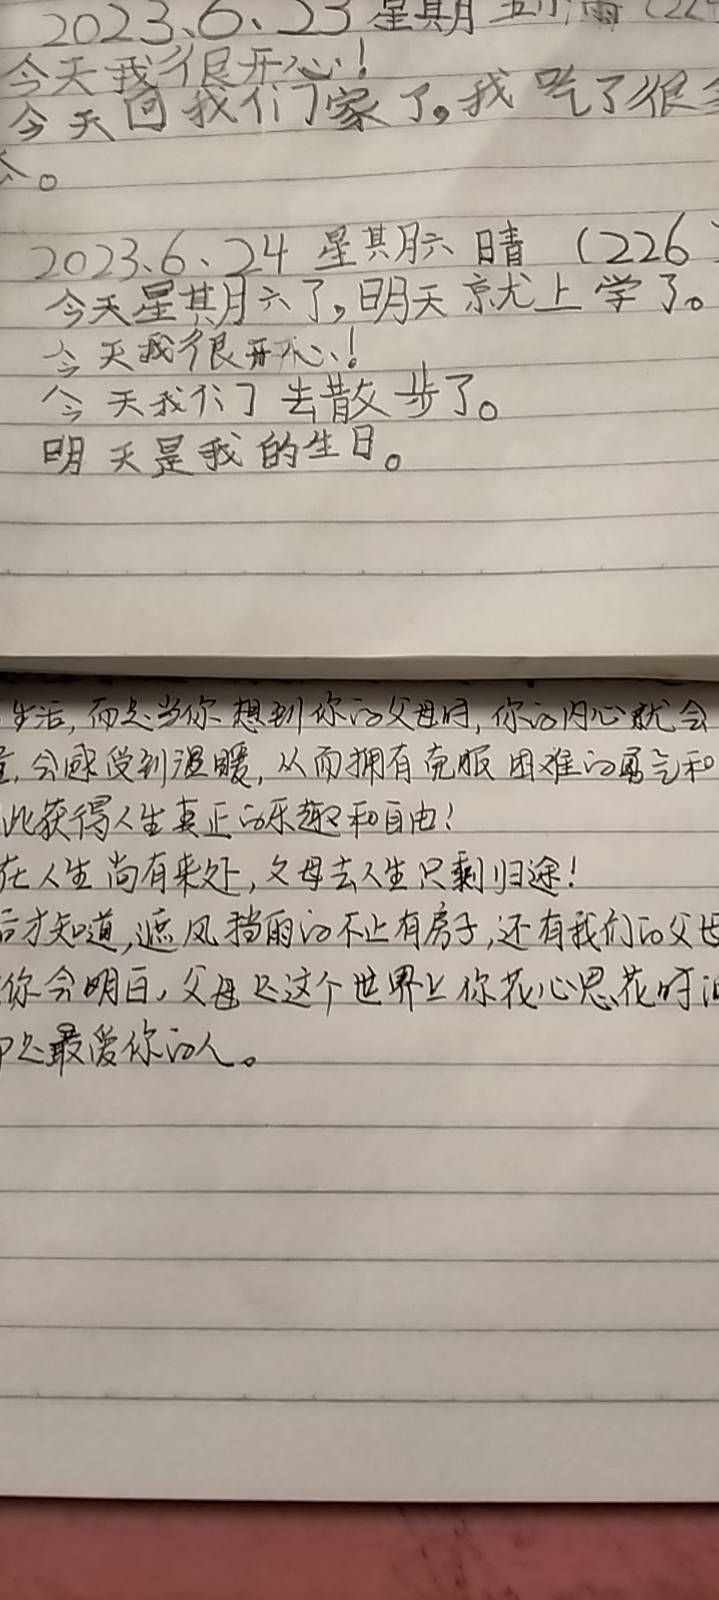 2023.6.23 星期五小雨(22
今天我很开心!
今天回我们家了。我吃了很
2023.6.24 星期六 晴 (226
今天星期六了,明天就上学了。
今天我很开心!
今天我们去散步了。
明天是我的生日。
生活,而是当你想到你的父母时,你的内心就会
会感受到温暖,从而拥有克服困难的勇气和
此获得人生真正的乐趣和自由!
在人生尚有来处,父母去人生只剩归途!
后才知道,遮风挡雨的不止有房子,还有我们的父母
你会明白,父母是这个世界上你花心思花时
是最爱你的人。